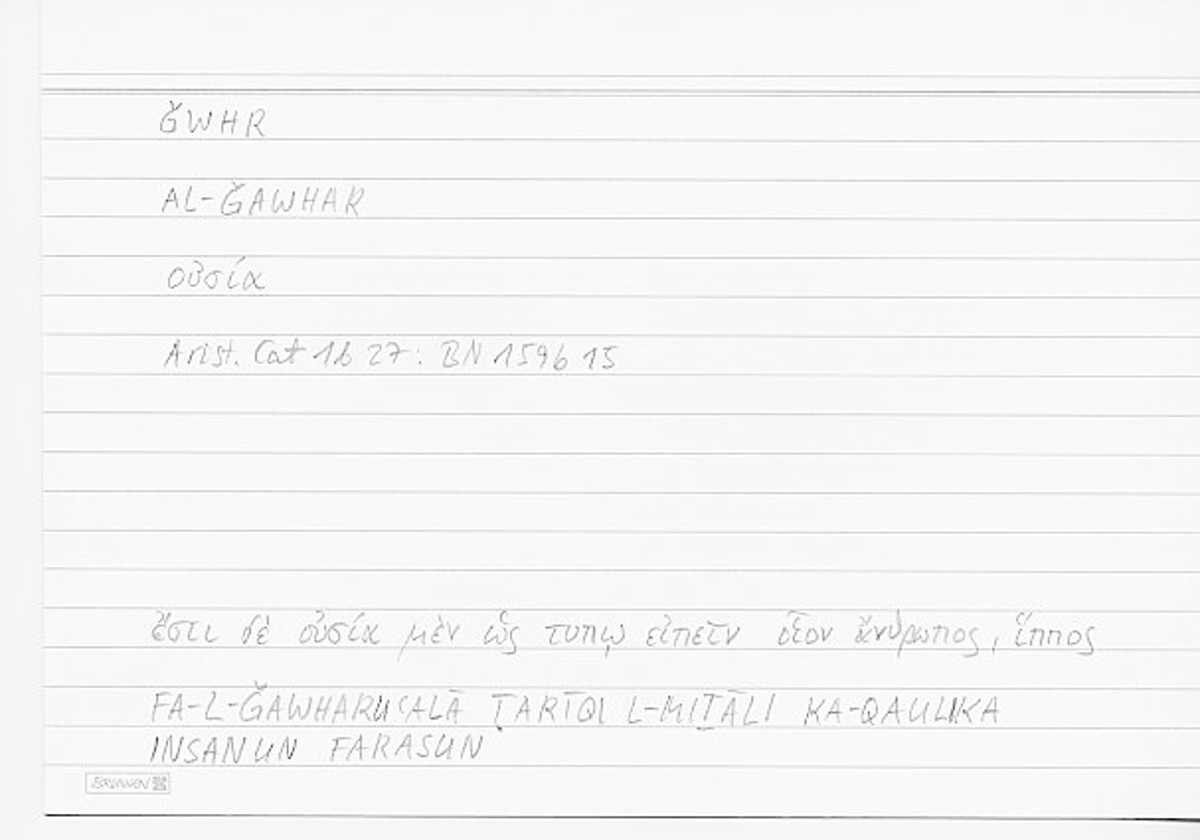 ǦWHR
AL-ǦAWHAR
οὐσία
Arist. Cat 1b 27: BN 159b 15
ἔστι δὲ οὐσία μὲν ὡς τυπῳ εἰπεῖν οἷον ἄνθρωπος, ἵππος
FA-L-ǦAWHARU ʿALĀ ṬARĪQI L-MIṮĀLI KA-QAULIKA
INSANUN FARASUN
BRUNNEN